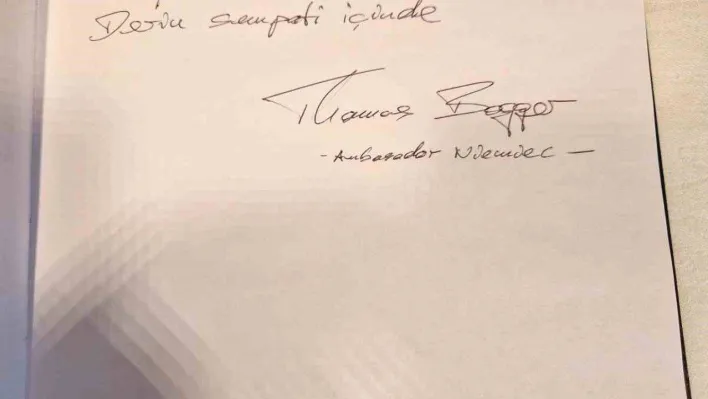 Derin sempati içinde
Thomas Bagger
- Ambasador Niemiec -